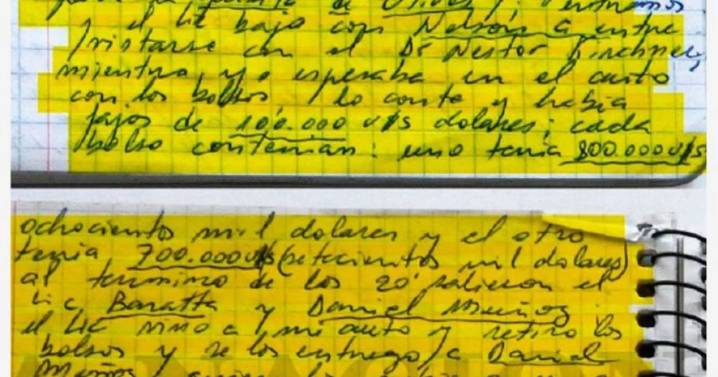 puerta de Olivos; entramos
el Lic bajo con Nelson a entre
vistarse con el Dr Nestor Kirchner,
mientras yo esperaba en el auto
con los bolsos lo conte y habia
fajos de 100.000 u/s dolares; cada
bolso contenian: uno tenia 800.000 u/s
ochocientos mil dolares y el otro
tenia 700.000 u/s (setecientos mil dolares)
al termino de los 20' salieron el
Lic Baratta y Daniel Muñoz
el Lic vino a mi auto y retiro los
bolsos y se los entrego a Daniel
Muñoz